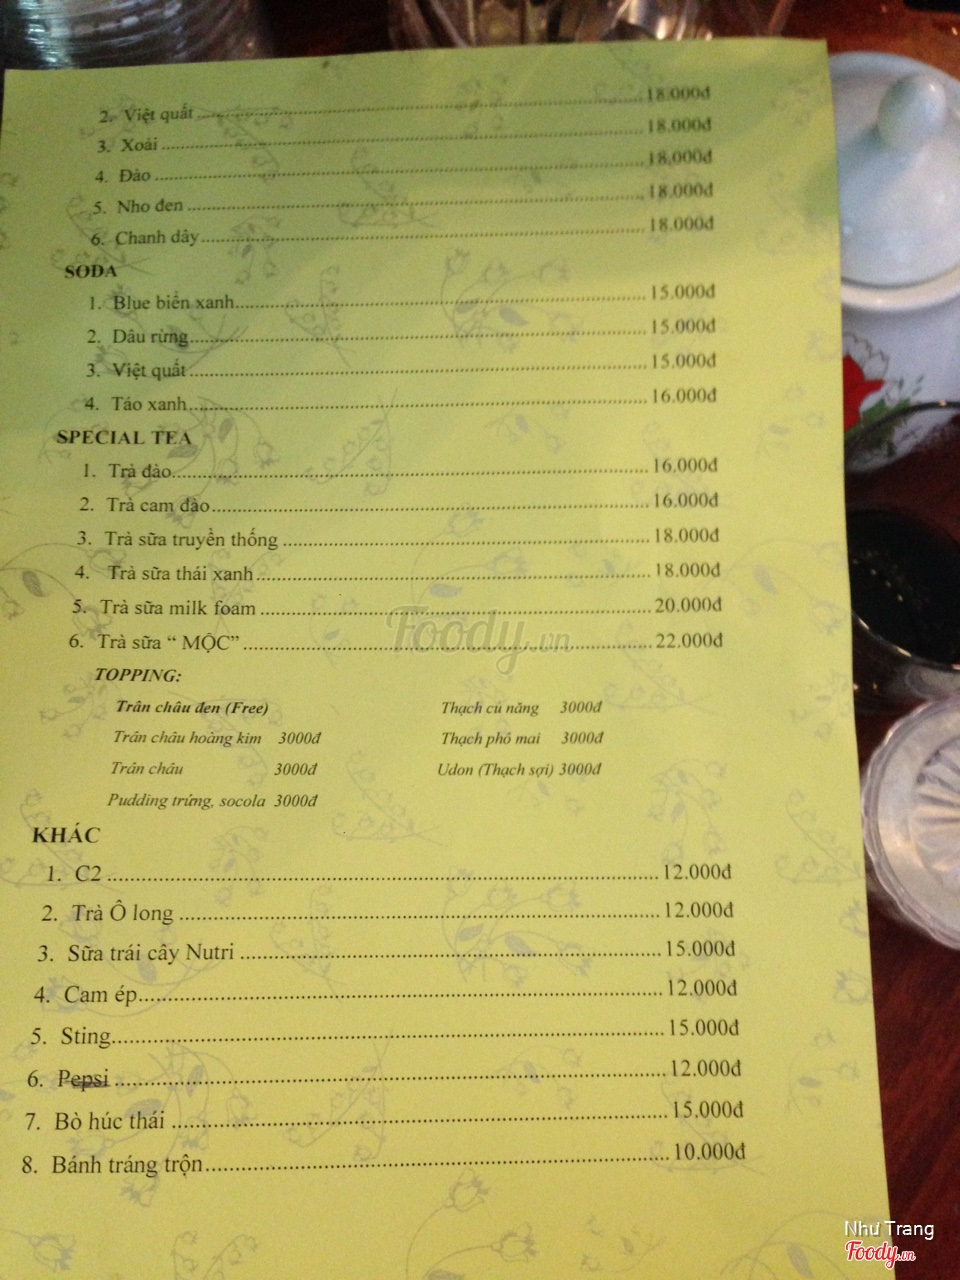 2. Việt quất 18.000đ
3. Xoài 18.000đ
4. Đào 18.000đ
5. Nho đen 18.000đ
6. Chanh dây 18.000đ
SODA
1. Blue biển xanh 15.000đ
2. Dâu rừng 15.000đ
3. Việt quất 15.000đ
4. Táo xanh 16.000đ
SPECIAL TEA
1. Trà đào 16.000đ
2. Trà cam đào 16.000đ
3. Trà sữa truyền thống 18.000đ
4. Trà sữa thái xanh 18.000đ
5. Trà sữa milk foam 20.000đ
6. Trà sữa “ MỘC” 22.000đ
Foody.vn
TOPPING:
Trân châu đen (Free) Thạch củ năng 3000đ
Trân châu hoàng kim 3000đ Thạch phô mai 3000đ
Trân châu 3000đ Udon (Thạch sợi) 3000đ
Pudding trứng, socola 3000đ
KHÁC
1. C2 12.000đ
2. Trà Ô long 12.000đ
3. Sữa trái cây Nutri 15.000đ
4. Cam ép 12.000đ
5. Sting 15.000đ
6. Pepsi 12.000đ
7. Bò húc thái 15.000đ
8. Bánh tráng trộn 10.000đ
Như Trang
Foody.vn